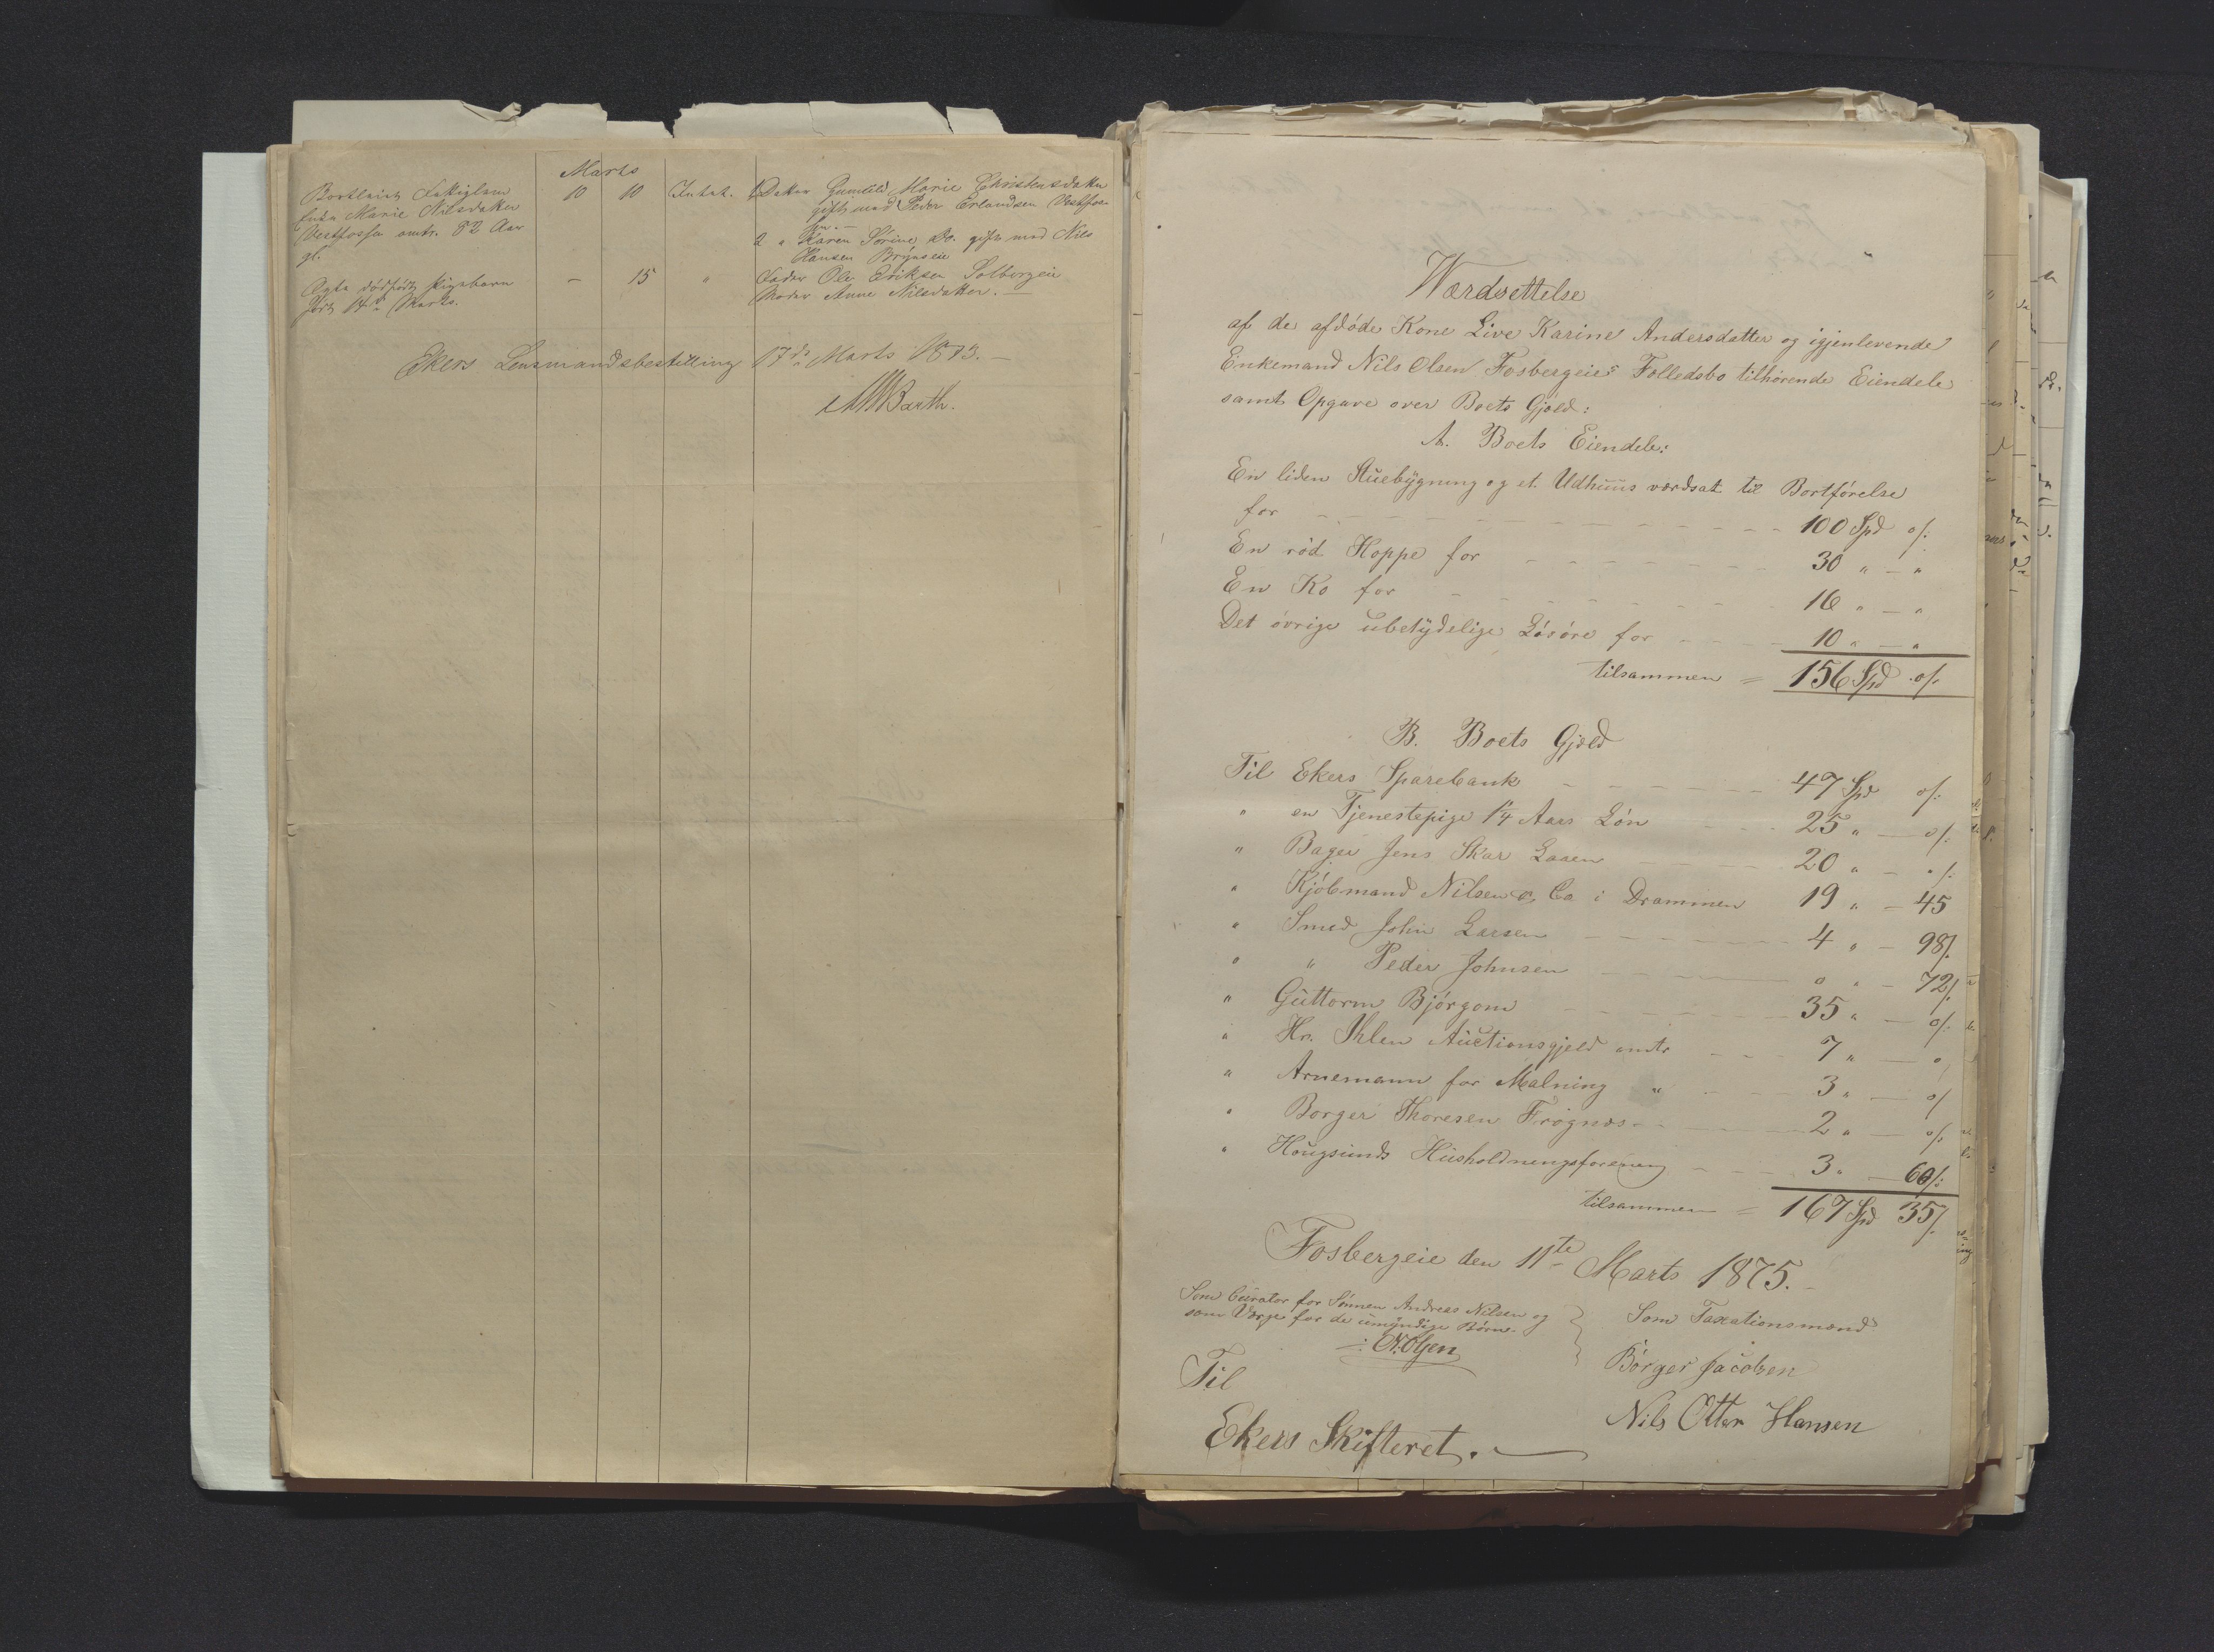 Marts
10 10 Intet. 1 Datter Gunild Marie Christensdatter
Enke Marie Nilsdatter gift med Peder Erlandsen Vestfos-
Vestfossen omtr. 82 Aar
2 " Karen Sørine Do. gift med Nils
gl. Hansen Brynseie
Ægte dødfødt Pigebarn — 15 " Fader Ole Eriksen Solbergeie
født 14de Marts. Moder Anne Nilsdatter. —
Ekers Lensmandsbestilling 17de Marts 1875. —
Barth.
Værdsettelse
af de afdöde Kone Live Karine Andersdatter og igjenlevende
Enkemand Nils Olsen Fosbergeies Folledsbo tilhörende Eiendele
samt Opgave over Boets Gjæld:
A. Boets Eiendele:
En liden Stuebygning og et Udhuus værdsat til Bortförelse
for 100 Spd o/:
En röd Hoppe for 30 " — "
En Ko for 16 " — "
Det övrige ubetydelige Lösöre for 10 " — "
tilsammen = 156 Spd o/:
B. Boets Gjæld
Til Ekers Sparebank 47 Spd o/:
" en Tjenestepige 1 1/4 Aars Lön 25 " — o/:
" Bager Jens Skar Laasen 20 " — o/:
" Kjöbmand Nilsen & Co i Drammen 19 " — 45
" Smed John Larsen 4 " — 98/:
" " Peder Johnsen " " — 72/:
" Guttorm Björgom 35 " — o/:
" Hr. Ihlen Auctionsgjeld omtr 7 " — "
" Arnemann for Malning " 3 " — o/
" Borger Thoresen Frognæs 2 " — o/:
" Hougsunds Husholdningsforening 3 " — 60/:
tilsammen = 167 Spd 35/:
Fosbergeie den 11te Marts 1875.
Som Curator for Sönnen Andreas Nilsen og
som Værge for de umyndige Börn.
N. Olsen
Som Taxationsmænd
Börger Jacobsen
Nils Otter Hansen
Til
Ekers Skifteret.